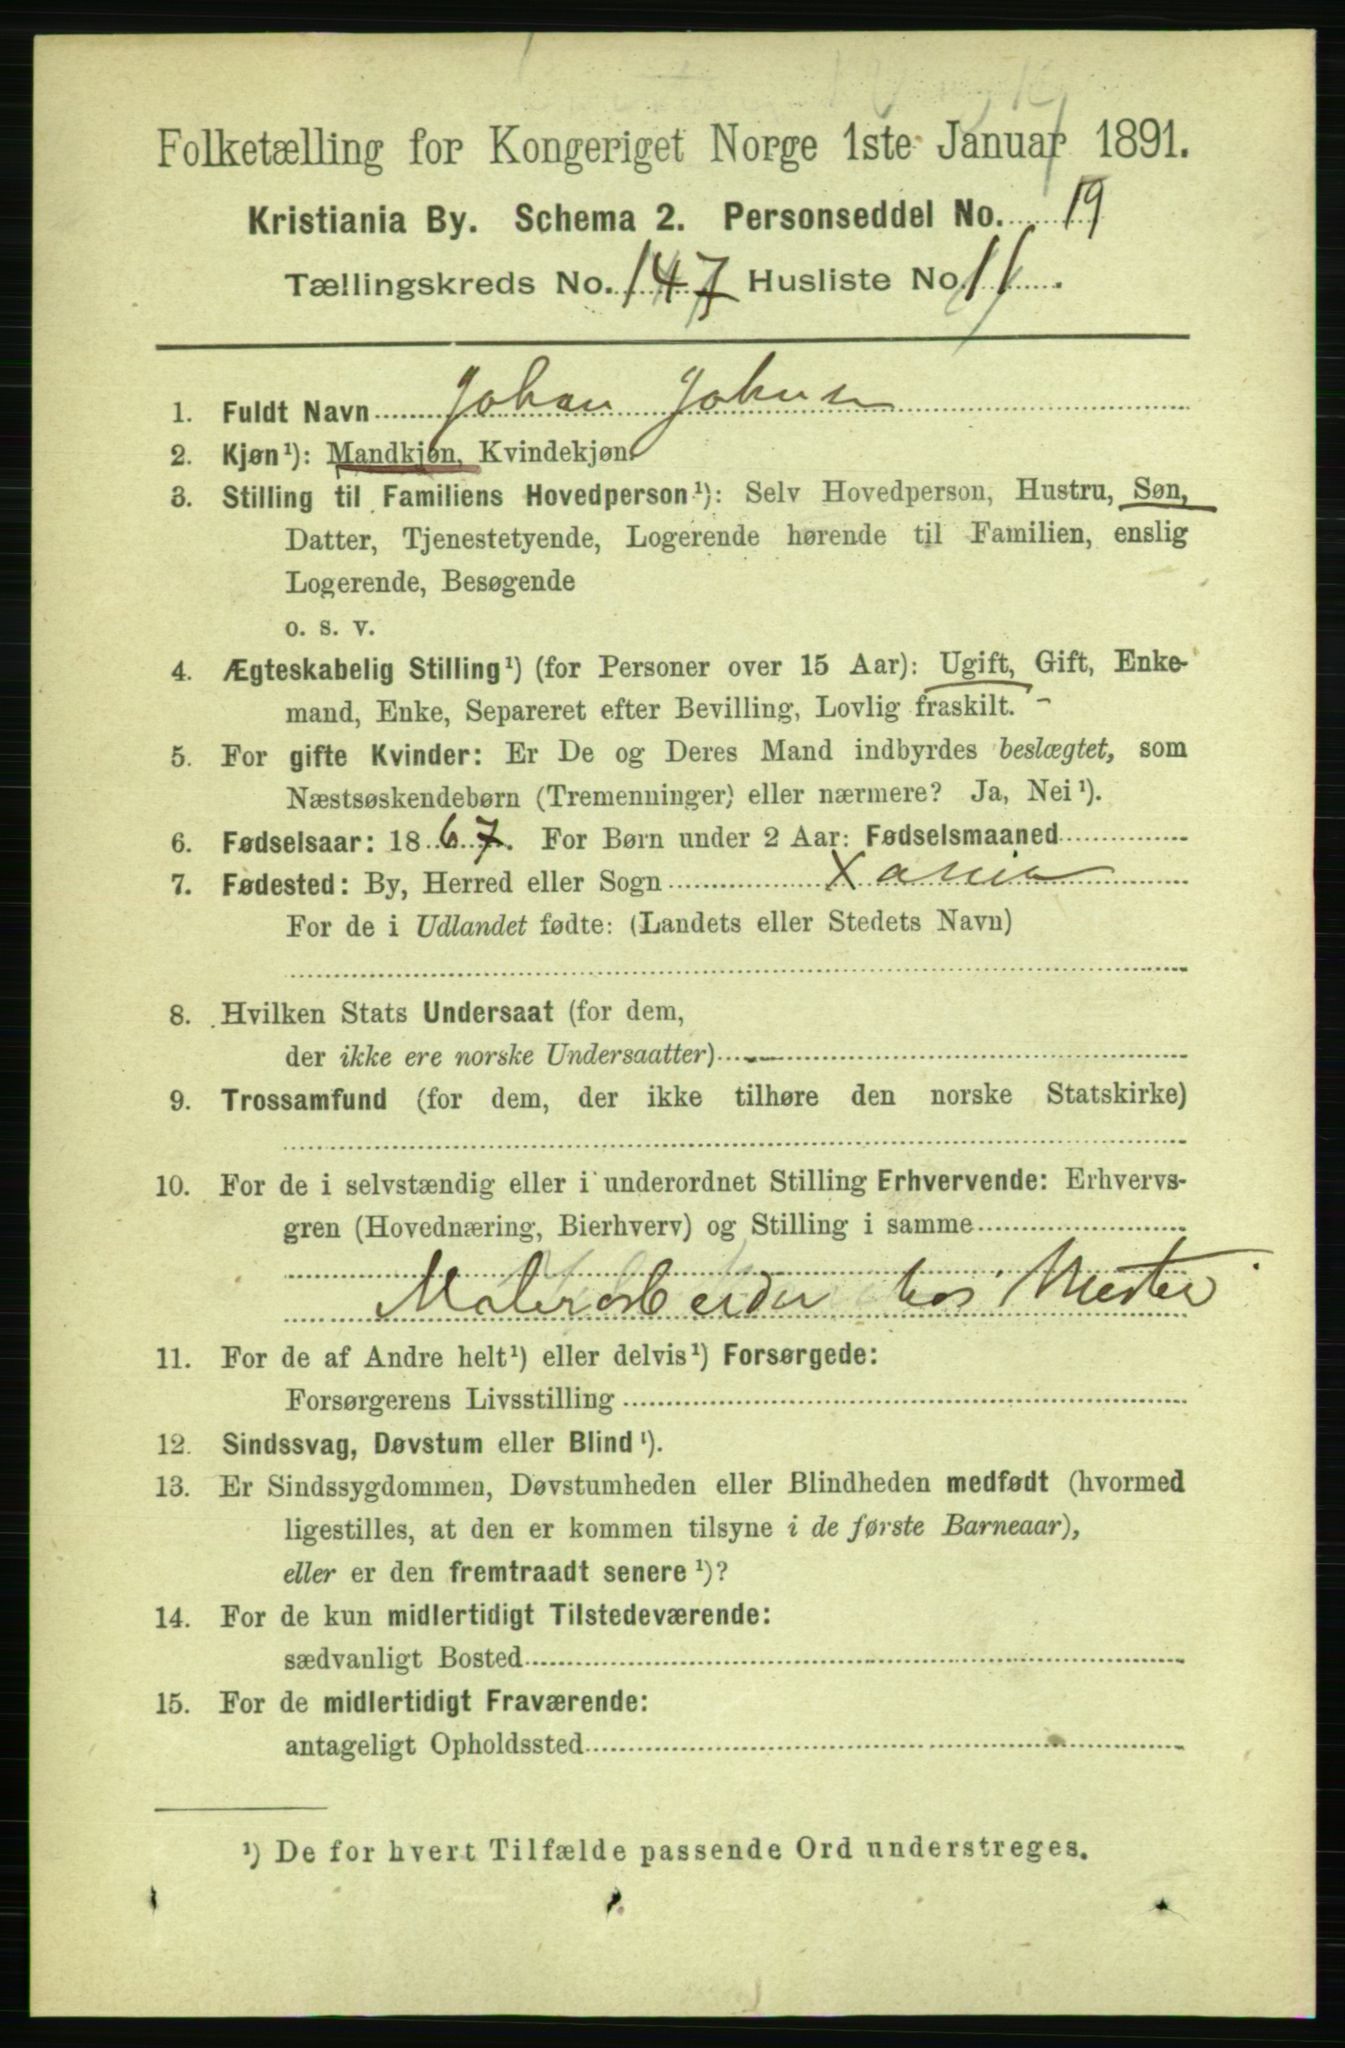 Folketælling for Kongeriget Norge 1ste Januar 1891.
Kristiania By. Schema 2. Personseddel No. 19
Tællingskreds No. 147 Husliste No. 11.
1. Fuldt Navn Johan Johnsen
2. Kjøn¹): Mandkjøn, Kvindekjøn.
3. Stilling til Familiens Hovedperson¹): Selv Hovedperson, Hustru, Søn,
Datter, Tjenestetyende, Logerende hørende til Familien, enslig
Logerende, Besøgende
o. s. v.
4. Ægteskabelig Stilling¹) (for Personer over 15 Aar): Ugift, Gift, Enke-
mand, Enke, Separeret efter Bevilling, Lovlig fraskilt.
5. For gifte Kvinder: Er De og Deres Mand indbyrdes beslægtet, som
Næstsøskendebørn (Tremenninger) eller nærmere? Ja, Nei¹).
6. Fødselsaar: 1867. For Børn under 2 Aar: Fødselsmaaned
7. Fødested: By, Herred eller Sogn Xania
For de i Udlandet fødte: (Landets eller Stedets Navn)
8. Hvilken Stats Undersaat (for dem,
der ikke ere norske Undersaatter)
9. Trossamfund (for dem, der ikke tilhøre den norske Statskirke)
10. For de i selvstændig eller i underordnet Stilling Erhvervende: Erhvervs-
gren (Hovednæring, Bierhverv) og Stilling i samme
Malerarbeider hos Mester
11. For de af Andre helt¹) eller delvis¹) Forsørgede:
Forsørgerens Livsstilling
12. Sindssvag, Døvstum eller Blind¹).
13. Er Sindssygdommen, Døvstumheden eller Blindheden medfødt (hvormed
ligestilles, at den er kommen tilsyne i de første Barneaar),
eller er den fremtraadt senere¹)?
14. For de kun midlertidigt Tilstedeværende:
sædvanligt Bosted
15. For de midlertidigt Fraværende:
antageligt Opholdssted
¹) De for hvert Tilfælde passende Ord understreges.